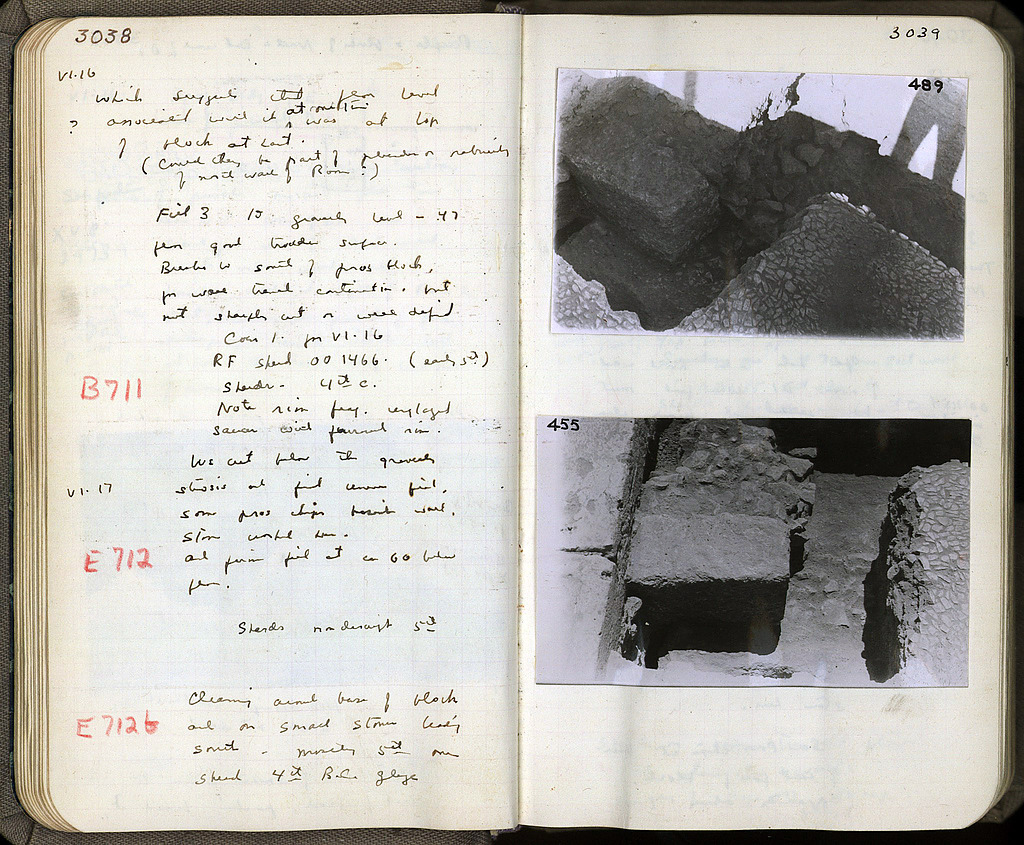 3038
VI·16
which suggests that floor level
? associated with it at one time was at top
of block at East.
(Could they be part of or
of north wall of Room?)
Fill 3 to gravelly level - 47
from good trodden surface.
Breaks to south of poros block,
for wall trench continuation, but
not sharply cut or well defined
Coin 1. for VI·16
RF sherd 00 1466. (early 5th)
B711
Sherds - 4th c.
Note rim frag.
saucer with rim.
We cut below the gravelly
VI·17
stosis at fill
some poros chips beside wall.
stone
E 712
and fill at ca 60 below
floor.
Sherds 5th
Cleaning around base of block
E 712b
and on small stones
south - mostly 5th one
sherd 4th B.C. glaze
3039
489
455